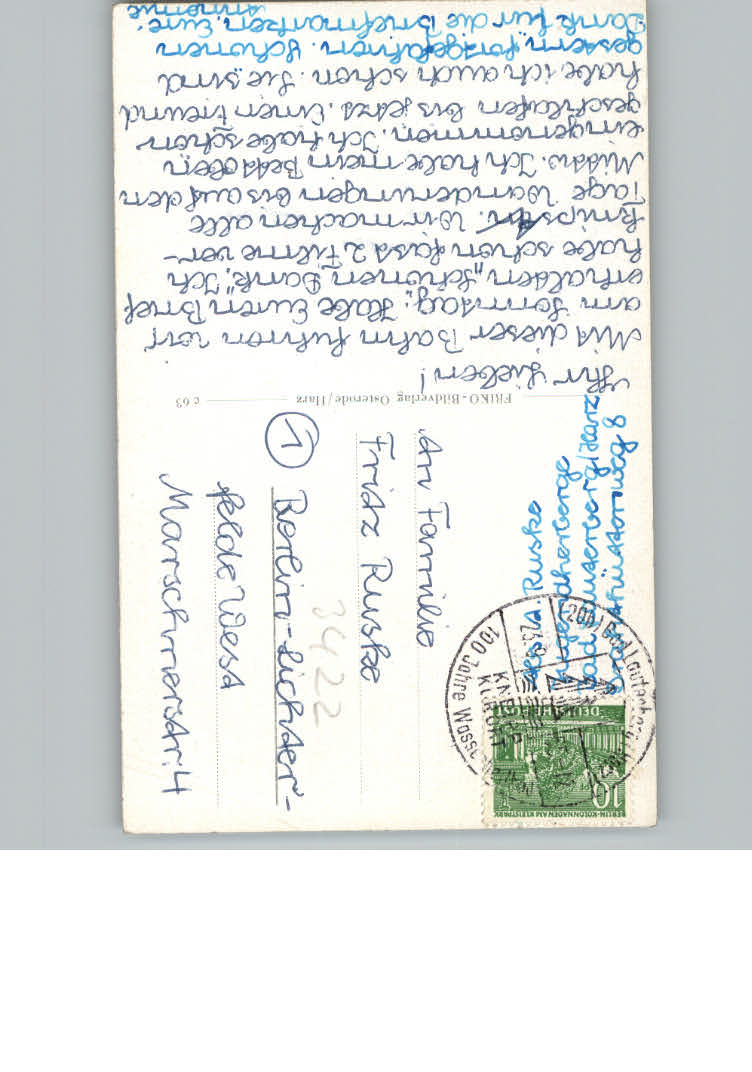 Ihr Lieben!
Mit dieser Bahn fuhren wir
am Sonntag. Habe Euren Brief
erhalten „Schönen Dank". Ich
habe schon fast 2 Filme ver-
knipst. Wir machen alle
Tage Wanderungen bis auf den
Mittw. Ich habe mein Bett oben
eingenommen. Ich habe schön
geschlafen bis jetzt. Einen Freund
habe ich auch schon. Sie sind
gestern fortgefahren. Schönen
Dank für die Briefmarken. Eure
Annemie
FRIKO-Bildverlag Osterode/Harz
c 63
Abs. A. Ruske
Jugendherberge
Bad Lauterberg/Harz
8
BERLIN-KOLONNADEN AM KLEISTPARK
10
DEUTSCHE POST
(20b) Bad Lauterberg
100 Jahre
KNEIPP
KURORT
An Familie
Fritz Ruske
① Berlin-Lichter-
felde West
Marschnerstr. 4
3422